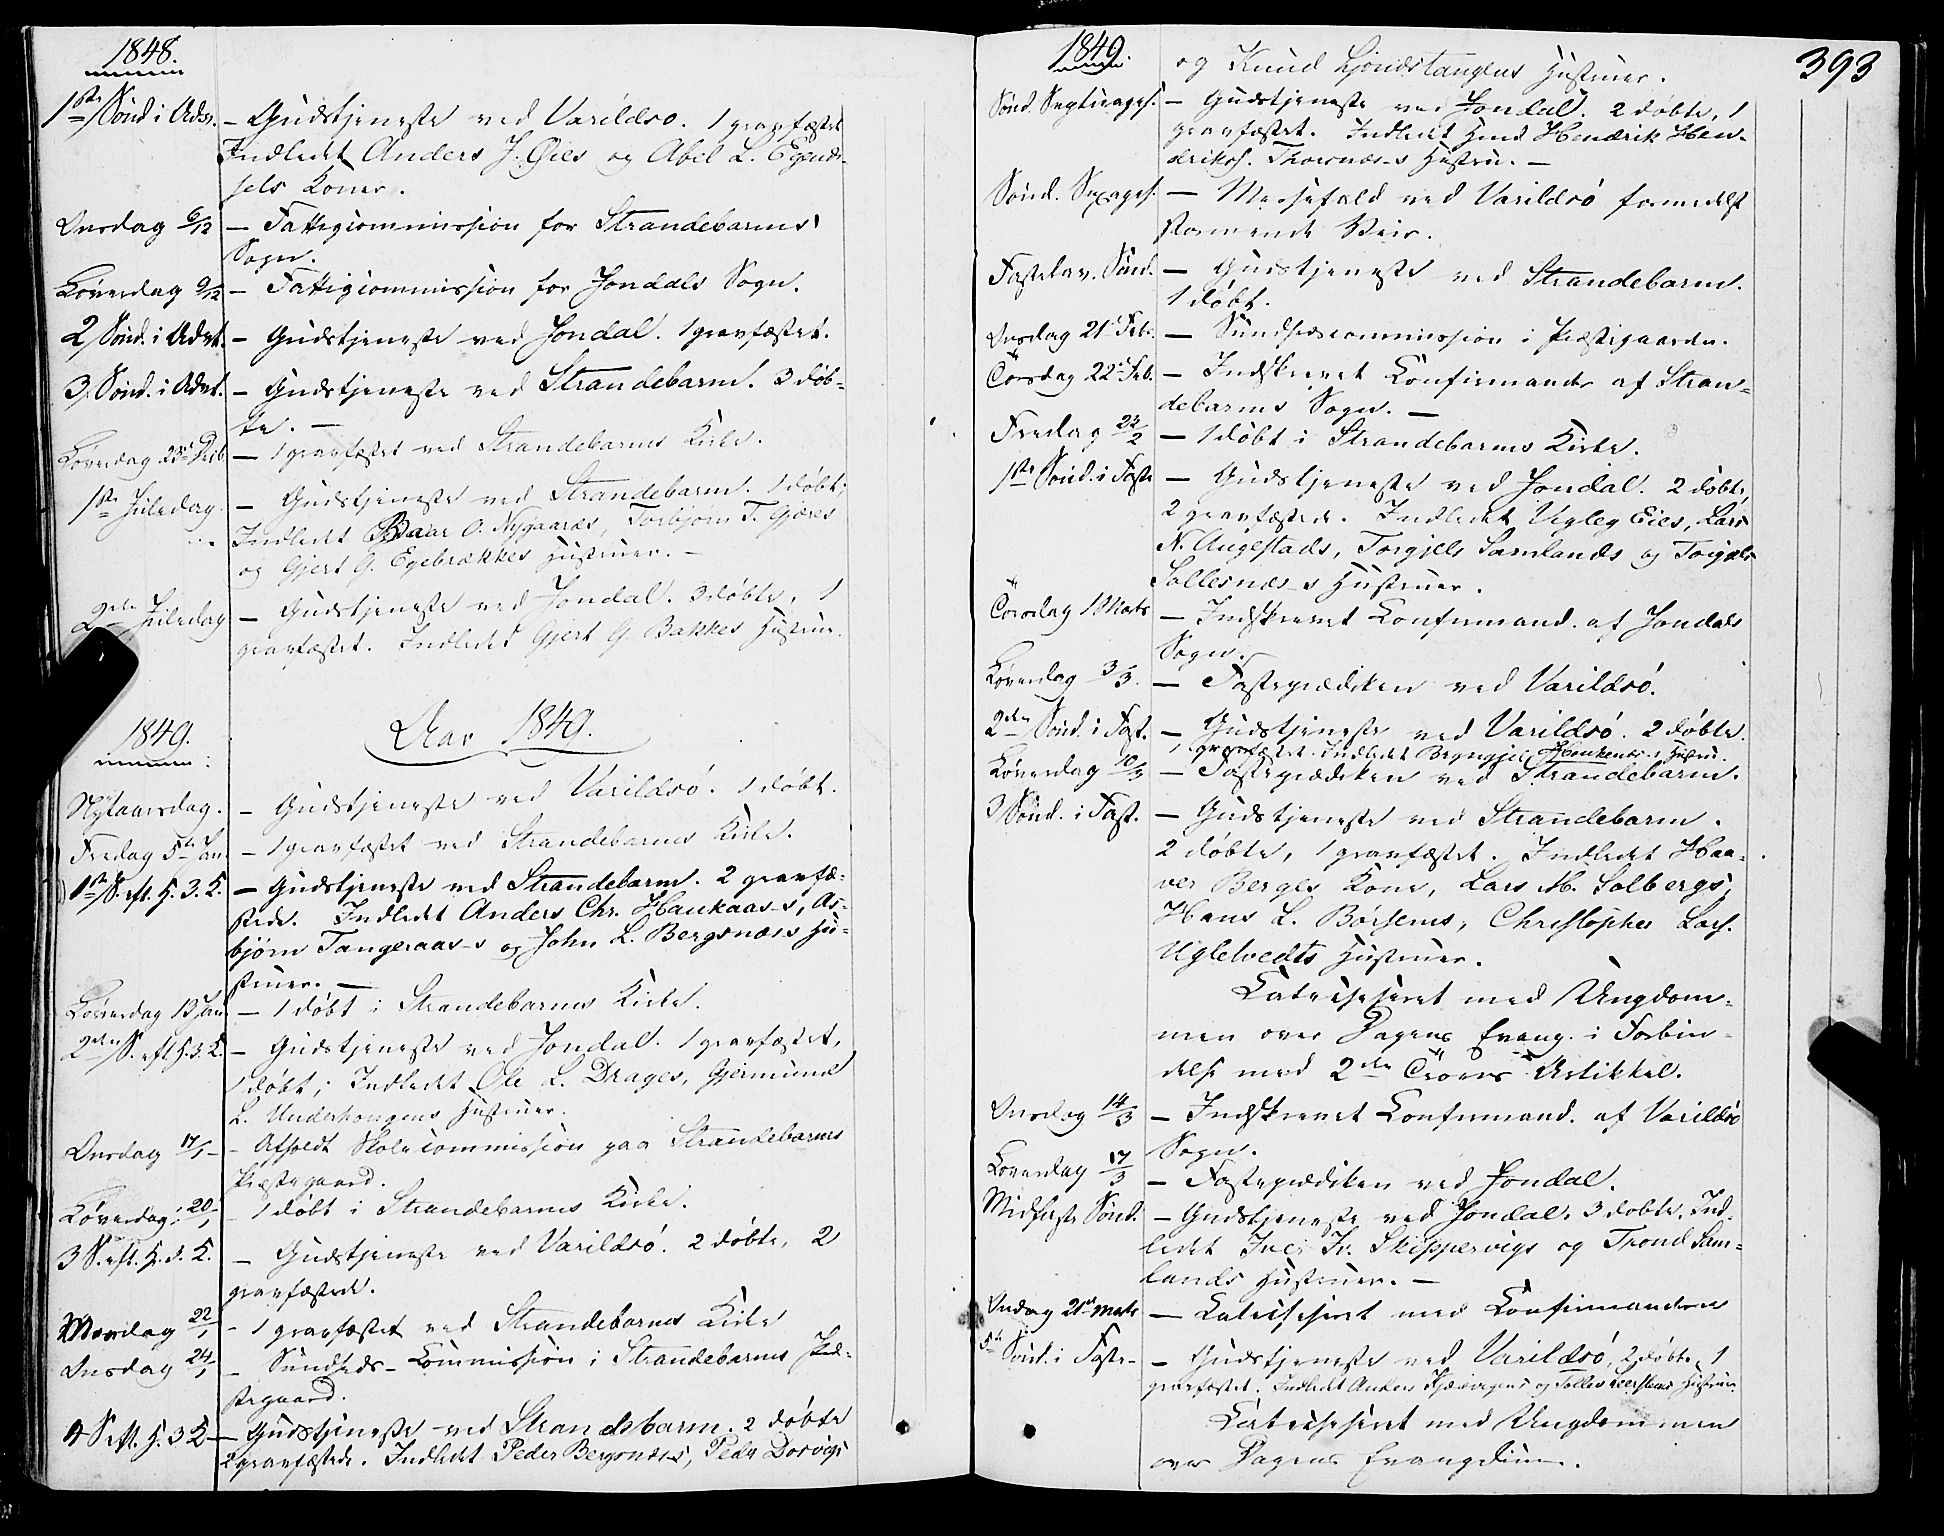 1848.
1ste Sönd. i Adv. — Gudstjeneste ved Varildsö. 1 gravfæstet
Indledet Anders J. Öies og Abel L. Egends-
sels Koner.
Onsdag 6/12 — Fattigcommission for Strandebarms
Sogn.
Löverdag 9/12 — Fattigcommission for Jondals Sogn.
2 Sönd. i Advt. — Gudstjeneste ved Jondal. 1 gravfæstet.
3. Sönd. i Advt. — Gudstjeneste ved Strandebarm. 3 döb-
te. —
Löverdag 23de Decb. — 1 gravfæstet ved Strandebarms Kirke.
1ste Juledag. — Gudstjeneste ved Strandebarm. 1 döbt;
Indledet Baar O. Nygaards, Torbjörn T. Gjæres
og Gjert G. Egebrækkes Hustruer. —
2den Juledag — Gudstjeneste ved Jondal. 3 döbte, 1
gravfæstet. Indledet Gjert G. Bakkes Hustrue.
1849. Aar 1849.
Nytaarsdag. — Gudstjeneste ved Varildsö. 1 döbt.
Fredag 5te Jan. — 1 gravfæstet ved Strandebarms Kirke.
1ste S. eft. H. 3. K. — Gudstjeneste ved Strandebarm. 2 gravfæ-
stede. Indledet Anders Chr. Haukaas-s, As-
björn Tangeraas-s og John L. Bergsnæss Hu-
struer. —
Löverdag 13 Jan. — 1 döbt i Strandebarms Kirke.
2den S. eft. H. 3. K. — Gudstjeneste ved Jondal. 1 gravfæstet,
1 döbt; Indledet Ole L. Drages, Gjermund
L. Underhougens Hustruer.
Onsdag 17/1 — Afholdt Skolecommission paa Strandebarms
Præstegaard.
Löverdag 20/1 — 1 döbt i Strandebarms Kirke.
3 S. eft. H. 3. K. — Gudstjeneste ved Varildsö. 2 döbte, 2
gravfæstede.
Mandag 22/1 — 1 gravfæstet ved Strandebarms Kirke
Onsdag 24/1 — Sundheds-Commission i Strandebarms Præ-
stegaard.
4 S. eft. H. 3 K — Gudstjeneste ved Strandebarm. 2 döbte
2 gravfæstede. Indledet Peder Bergsnæs-s, Peder Dorvigs
1849. 393
og Knud Ljonestangens Hustruer.
Sönd. Septuages. — Gudstjeneste ved Jondal. 2 döbte, 1
gravfæstet. Indledet Hendrik Hen-
driks. Thorsnæs-s Hustru. —
Sönd. Sexages. — Messefald ved Varildsö formedelst
stormende Veir.
Fastelav. Sönd. — Gudstjeneste ved Strandebarm.
1 döbt.
Onsdag 21de Feb. — Sundhedscommission i Præstegaarden.
Törsdag 22de Feb. — Indskrevet Confirmander af Stran-
debarms Sogn. —
Fredag 23/2 — 1 döbt i Strandebarms Kirke.
1ste Sönd. i Faste — Gudstjeneste ved Jondal. 2 döbte,
2 gravfæstede. Indledet Vigleg Eies, Lars
N. Augestads, Torgjels Samlands og Torgjels
Sollesnæs-s Hustruer.
Törsdag 1 Marts — Indskrevet Confirmand. af Jondals
Sogn.
Löverdag 3/3. — Fasteprædiken ved Varildsö.
2den Sönd. i Fast. — Gudstjeneste ved Varildsö. 2 döbte.
1 gravfæstet. Indledet Haukenæs-s Hustru.
Löverdag 10/3 — Fasteprædiken ved Strandebarm.
3 Sönd. i Fast. — Gudstjeneste ved Strandebarm.
2 döbte, 1 gravfæstet. Indledet Haa-
ver Berges Kone, Lars M. Solbergs,
Hans L. Börsems, Christopher Lars.
Uglelvedts Hustruer.
Catechiseret med Ungdom-
men over Dagens Evang. i Forbin-
delse med 2den Troens Artikkel.
Onsdag 14/3 — Indskrevet Confirmand. af Varildsö
Sogn.
Löverdag 17/3 — Fasteprædiken ved Jondal.
Midfaste Sönd. — Gudstjeneste ved Jondal. 3 döbte. Ind-
ledet Iver Iv. Skippervigs og Trond Sam-
lands Hustruer. —
Onsdag 21de Marts — Catechiseret med Confirmanderne
5te Sönd. i Faste — Gudstjeneste ved Varildsö, 2 döbte, 1
gravfæstet. Indledet Anders og Tolles Hustruer.
Catechiseret med Ungdommen
over Dagens Evangelium.